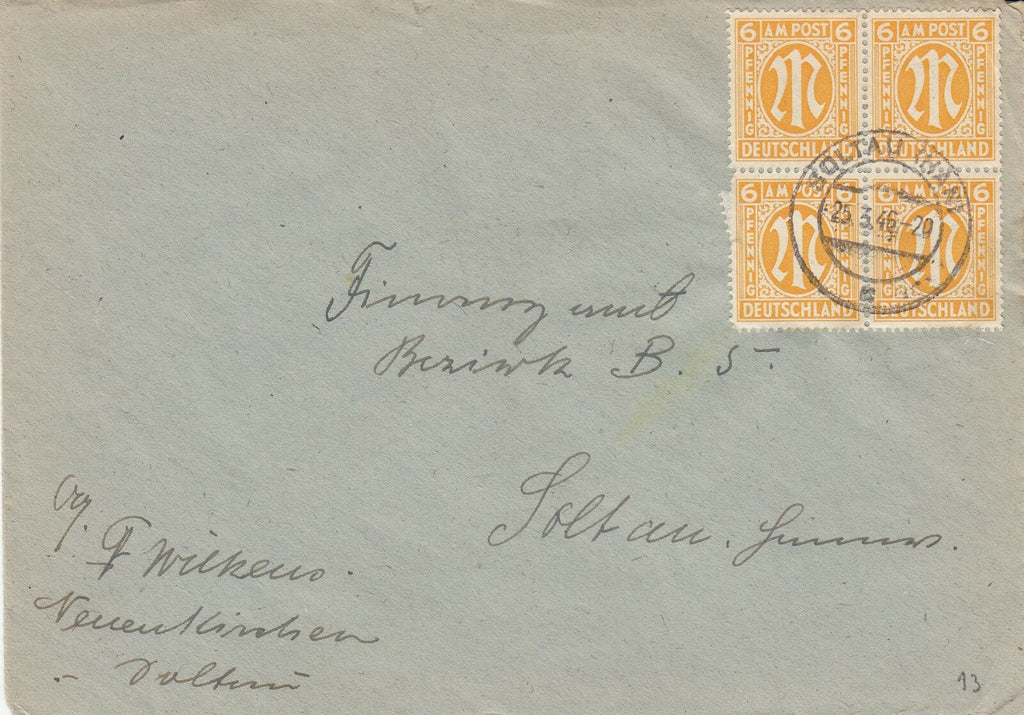 6 AM POST 6
PFENNIG PFENNIG
DEUTSCHLAND
6 AM POST 6
PFENNIG PFENNIG
DEUTSCHLAND
6 AM POST 6
PFENNIG PFENNIG
DEUTSCHLAND
6 AM POST 6
PFENNIG PFENNIG
DEUTSCHLAND
SOLTAU (HAN)
25.3.46-20
Finanzamt
Bezirk B. 5
Soltau. Hannov.
F Wilkens.
Neuenkirchen
- Soltau
13